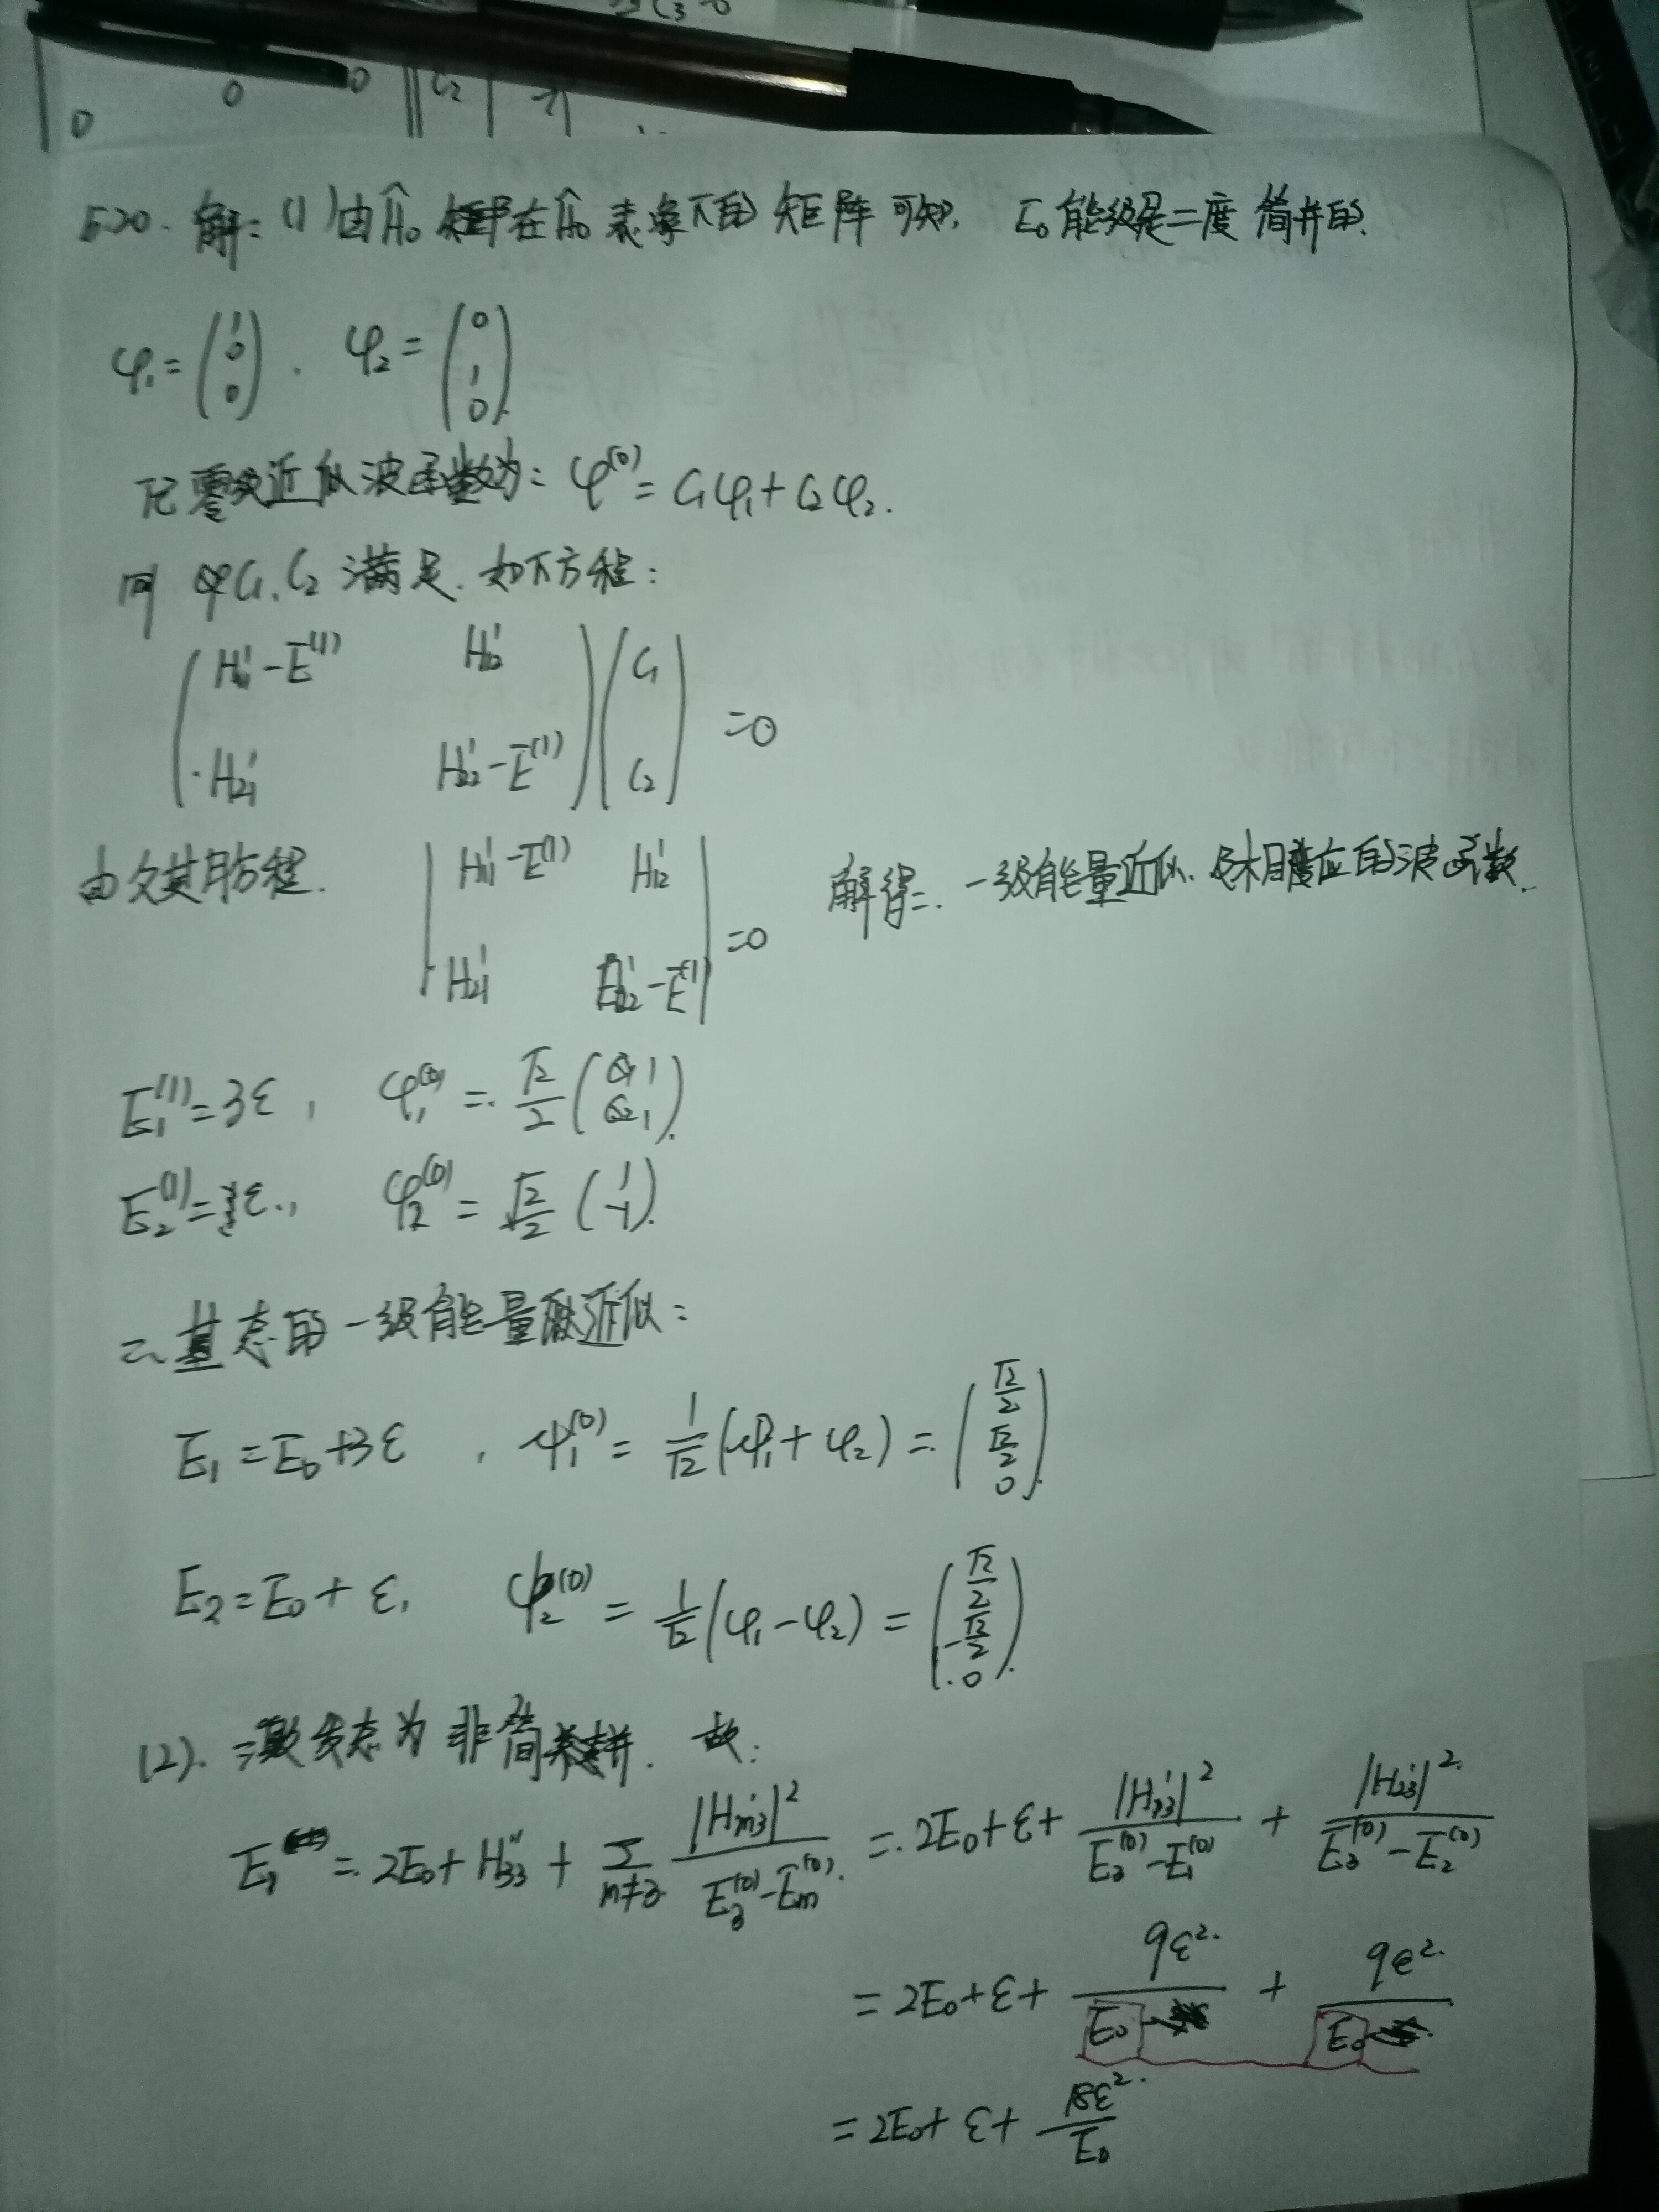 0 0 0 C₂
5.20. 解: (1) 由Ĥ₀ 在Ĥ₀ 表象下的 矩阵 可知, E₀ 能级是二度 简并的.
φ₁ = (1 0 0) . φ₂ = (0 1 0).
记零级近似波函数为: φ⁽⁰⁾ = C₁φ₁ + C₂φ₂.
C₁. C₂ 满足. 如下方程:
(H₁₁' - E⁽¹⁾ H₁₂'
H₂₁' H₂₂' - E⁽¹⁾) (C₁ C₂) = 0
由久期方程. |H₁₁' - E⁽¹⁾ H₁₂'
H₂₁' H₂₂' - E⁽¹⁾| = 0 解得: 一级能量近似. 及相应的波函数.
E₁⁽¹⁾ = 3ε , φ₁⁽⁰⁾ = √2/2 (1 1).
E₂⁽¹⁾ = ε., φ₂⁽⁰⁾ = √2/2 (1 -1).
∴ 基态的一级能量近似:
E₁ = E₀ + 3ε , ψ₁⁽⁰⁾ = 1/√2 (φ₁ + φ₂) = (√2/2 √2/2 0).
E₂ = E₀ + ε, ψ₂⁽⁰⁾ = 1/√2 (φ₁ - φ₂) = (√2/2 -√2/2 0).
(2). ∵激发态为 非简并. 故:
E₃ = 2E₀ + H₃₃' + Σ_{m≠3} |H'm3|²/(E₃⁽⁰⁾ - Em⁽⁰⁾) = 2E₀ + ε + |H₁₃'|²/(E₃⁽⁰⁾ - E₁⁽⁰⁾) + |H₂₃'|²/(E₃⁽⁰⁾ - E₂⁽⁰⁾)
= 2E₀ + ε + 9ε²/E₀ + 9ε²/E₀
= 2E₀ + ε + 18ε²/E₀